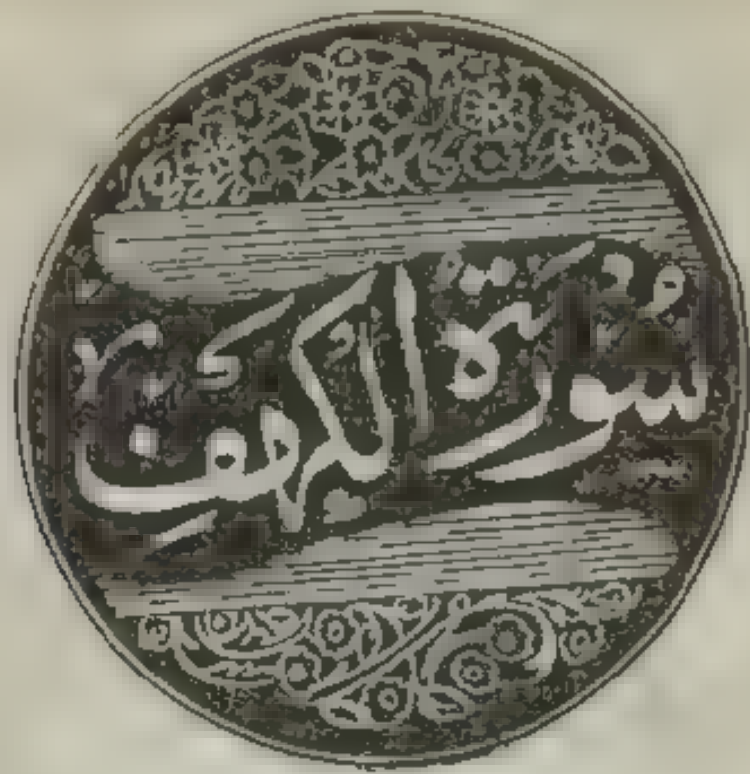 سُورَةُ الكَهفِ